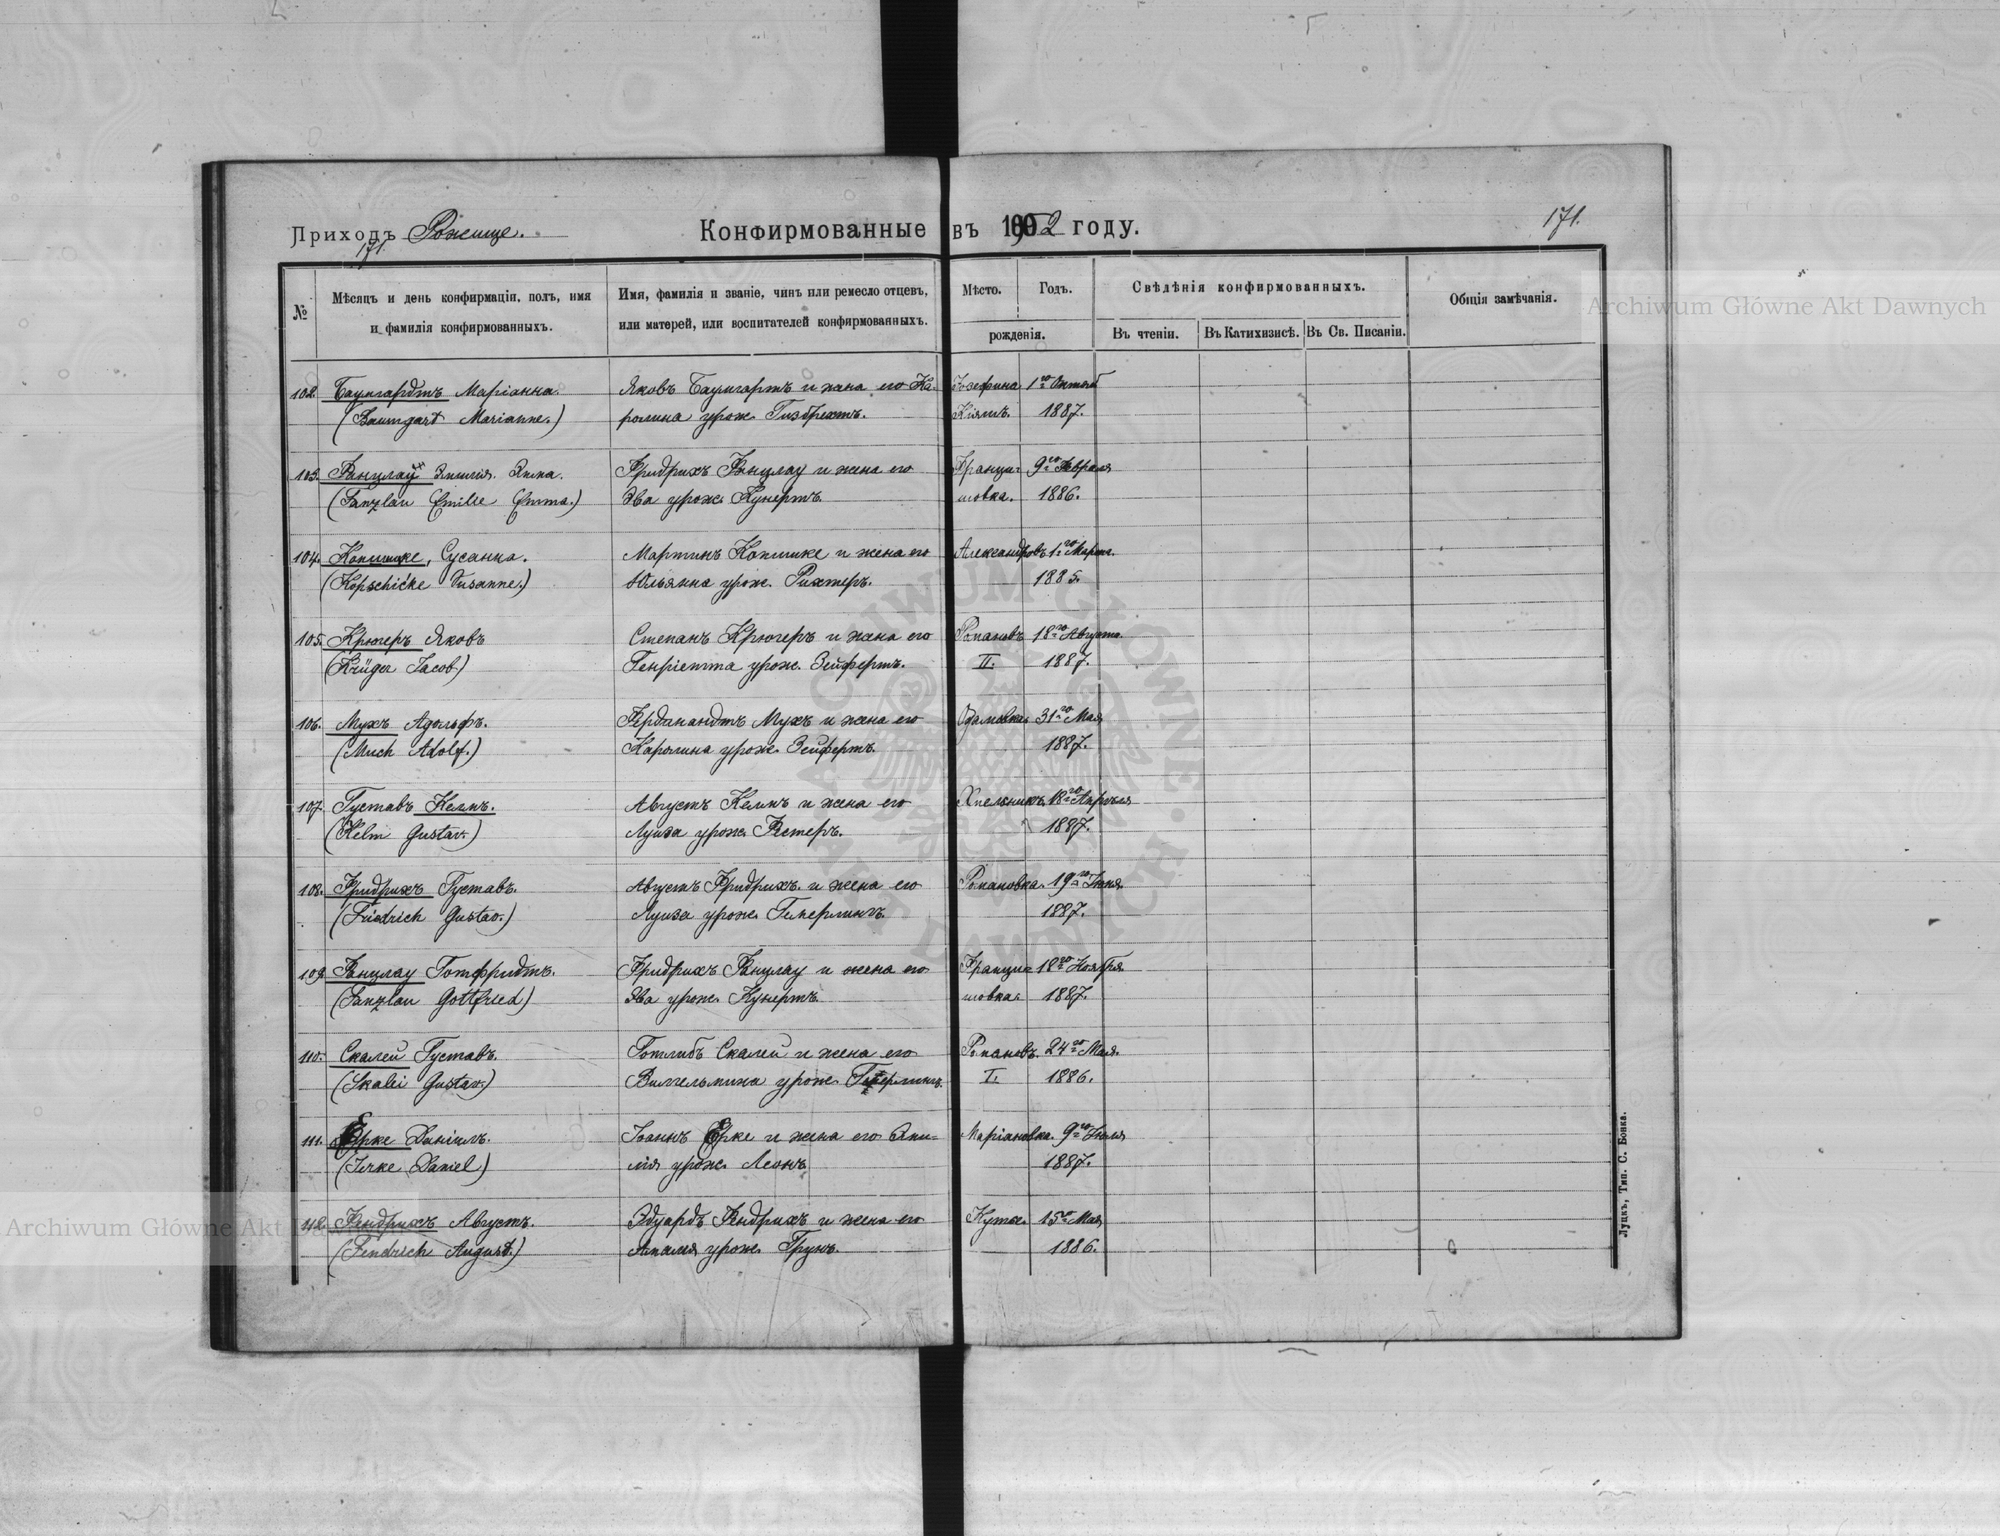 Приходъ Рожище.
171.
Конфирмованные въ 1902 году.
171.
№
Мѣсяцъ и день конфирмаціи, полъ, имя
и фамилія конфирмованныхъ.
Имя, фамилія и званіе, чинъ или ремесло отцевъ,
или матерей, или воспитателей конфирмованныхъ.
Мѣсто.
Годъ.
рожденія.
Свѣдѣнія конфирмованныхъ.
Въ чтеніи.
Въ Катихизисѣ.
Въ Св. Писаніи.
Общія замѣчанія.
102. Баумгардтъ Маріанна. Яковъ Баумгартъ и жена его Ка- Іозефина 1го Октяб
(Baumgart Marianne.) ролина урож. Гизбрехтъ. 1887.
103. Фанцлау Эмилія Эмма. Фридрихъ Фанцлау и жена его Франци- 9го Февраля
(Fanzlau Emilie Emma.) Эва урож. Кунертъ шовка. 1886.
104. Копшике, Сусанна. Мартинъ Копшике и жена его Александровъ 1го Марта.
(Kopschicke Susanne.) Юльянна урож. Рихтеръ. 1885.
105. Крюгеръ Яковъ Степанъ Крюгеръ и жена его Романовъ 18го Августа.
(Krüger Jacob) Генріетта урож. Зейфертъ. II. 1887.
106. Мухъ Адольфъ. Фердинандтъ Мухъ и жена его Адамовка 31го Мая
(Much Adolf.) Каролина урож. Зейфертъ. 1887.
107. Густавъ Келмъ. Августъ Келмъ и жена его Хмельникъ 18го Апрѣля
(Kelm Gustav.) Луиза урож. Фестеръ. 1887.
108. Фридрихъ Густавъ. Августъ Фридрихъ и жена его Романовка. 19го Іюня
(Friedrich Gustav.) Луиза урож. Гемерлингъ. 1887.
109. Фанцлау Готфридтъ. Фридрихъ Фанцлау и жена его Франци- 18го Ноября
(Fanzlau Gottfried) Эва урож. Кунертъ шовка. 1887.
110. Скалей Густавъ. Готлибъ Скалей и жена его Романовъ 24го Мая.
(Skalei Gustav.) Вилгельмина урож. I. 1886.
111. Ерке Даніилъ. Іоаннъ Ерке и жена его Эми- Маріановка. 9го Іюля
(Jerke Daniel) лія урож. Леонъ 1887.
112. Фендрихъ Августъ. Эдуардъ Фендрихъ и жена его 15го Мая
(Fendrich August.) Амалія урож. Грунъ. 1886.
Луцкъ, Тип. С. Бонка.
Archiwum Główne Akt Dawnych
Archiwum Główne Akt Dawnych
ARCHIWUM GŁÓWNE AKT DAWNYCH